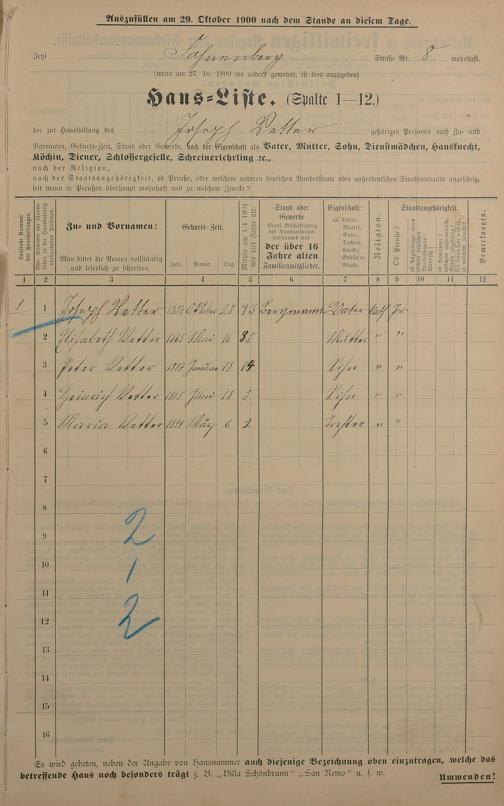 Auszufüllen am 29. Oktober 1900 nach dem Stande an diesem Tage.
Jetzt Straße Nr. 8 wohnhaft.
(wenn am 27. 10. 1899 wo anders gewohnt, ist dies anzugeben)
Haus-Liste. (Spalte 1—12.)
der zur Haushaltung des Joseph Vetter gehörigen Personen nach Zu- und
Vornamen, Geburts-Zeit, Stand oder Gewerbe, nach der Eigenschaft als Vater, Mutter, Sohn, Dienstmädchen, Hausknecht,
Köchin, Diener, Schlossergeselle, Schreinerlehrling ꝛc.,
nach der Religion,
nach der Staatsangehörigkeit, ob Preuße, oder welchem anderen deutschen Bundesstaate oder außerdeutschen Staatsverbande angehörig,
seit wann in Preußen überhaupt wohnhaft und zu welchem Zwecke?
Zu- und Vornamen:
Man bittet die Namen vollständig
und leserlich zu schreiben.
Geburts-Zeit.
Jahr. Monat. Tag.
Stand oder
Gewerbe
der über 16
Jahre alten
Familienmitglieder.
Eigenschaft:
ob Vater,
Mutter,
Sohn,
Tochter,
Religion.
Staatsangehörigkeit.
Ob Preuße?
Bemerkungen.
1 2 3 4 5 6 7 8 9 10 11 12
1 1 Joseph Vetter 1857 Oktober 25 43 Bergmann Vater kath Pr
2 Elisabeth Vetter 1865 Mai 16 Mutter " "
3 Peter Vetter 1887 Januar 13 14 Sohn " "
4 Heinrich Vetter 1895 Juni 18 5 Sohn " "
5 Maria Vetter 1898 März 6 2 Tochter " "
6
7
8
9 2
10
11 1
12 2
13
14
15
16
Es wird gebeten, neben der Angabe von Hausnummer auch diejenige Bezeichnung oben einzutragen, welche das
betreffende Haus noch besonders trägt z. B. „Villa Schönbrunn" „San Remo" u. s. w. Umwenden!